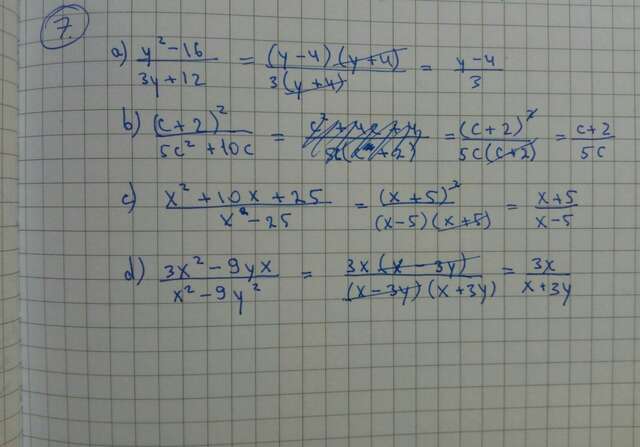 7.
a) (y²-16)/(3y+12) = ((y-4)(y+4))/(3(y+4)) = (y-4)/3
b) (c+2)²/(5c²+10c) = = (c+2)²/(5c(c+2)) = (c+2)/(5c)
c) (x²+10x+25)/(x²-25) = (x+5)²/((x-5)(x+5)) = (x+5)/(x-5)
d) (3x²-9yx)/(x²-9y²) = (3x(x-3y))/((x-3y)(x+3y)) = 3x/(x+3y)